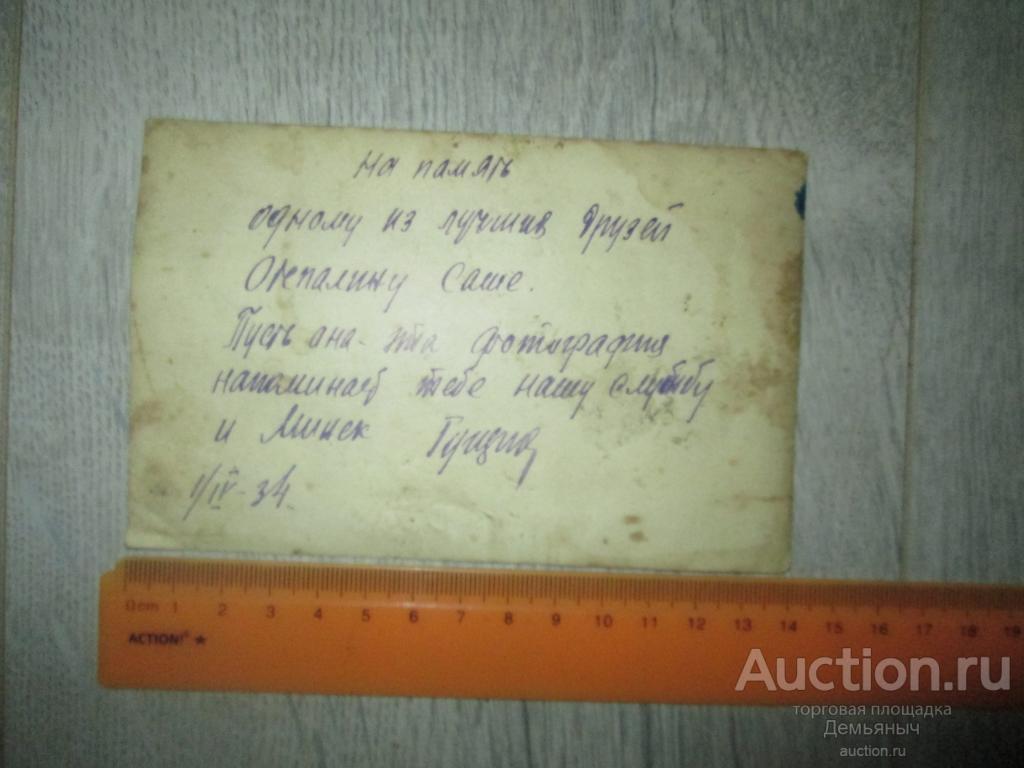 На память
одному из лучших друзей
Саше.
Пусть она - эта фотография
напоминает тебе нашу службу
и Минск
1/IV-34.
0cm 1 2 3 4 5 6 7 8 9 10 11 12 13 14 15 16 17 18 19
ACTION!
Auction.ru
торговая площадка
Демьяныч
auction.ru